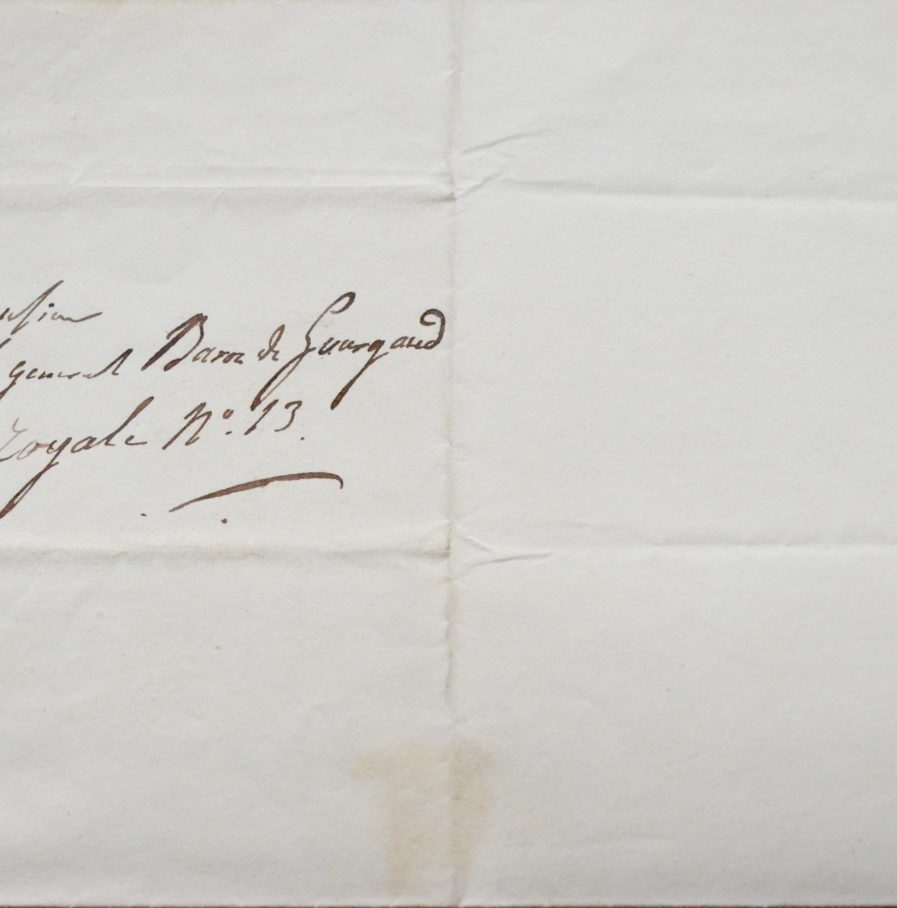 general Baron de Gourgaud
royale N.º 13.